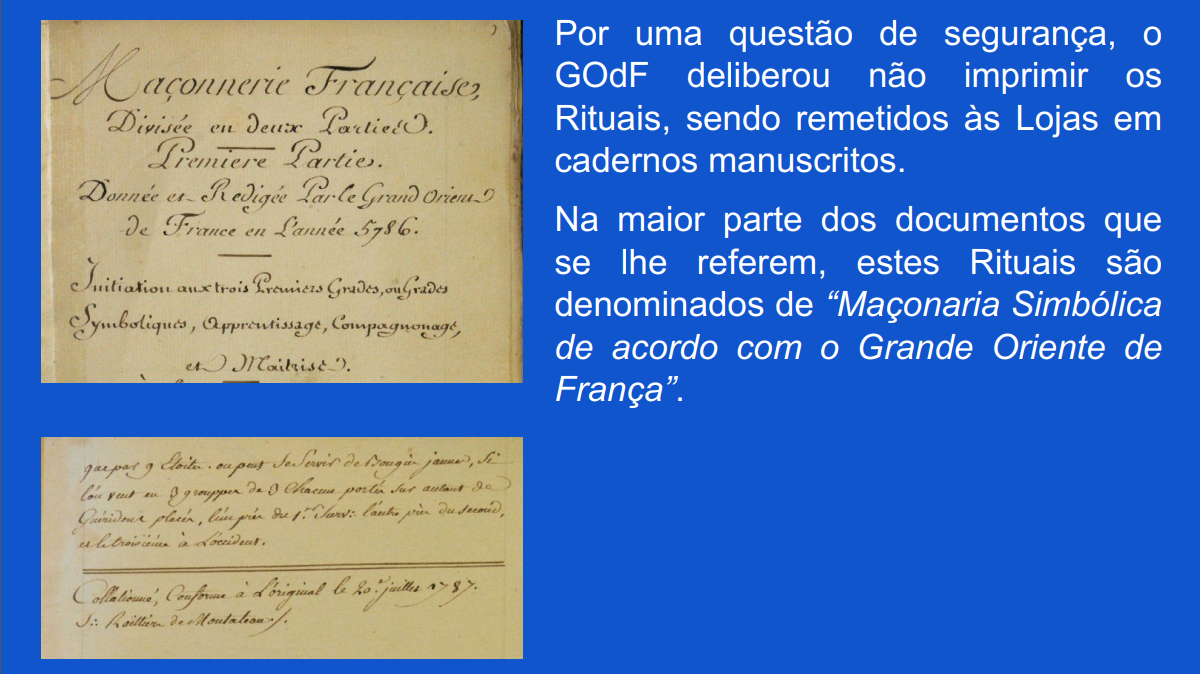 Maçonnerie Française,
Divisée en deux Parties.
Premiere Partie.
Donnée et Redigée Par le Grand Orient
de France en L'année 5786.
Initiation aux trois Premiers Grades, ou Grades
Symboliques, Apprentissage, Compagnonage,
et Maitrise.
que par 9 Etoiles. on peut Se Servir de Bougie jaune, Si
l'on veut en 3 grouppes de 3 Chacune portés sur autant de
Guéridons placés, l'un près du 1.er Surv:: l'autre près du second,
et le troisième à L'occident.
Collationné, Conforme à L'original le 20.e juillet 1787.
S:: Roëttiers de Montaleau
Por uma questão de segurança, o
GOdF deliberou não imprimir os
Rituais, sendo remetidos às Lojas em
cadernos manuscritos.
Na maior parte dos documentos que
se lhe referem, estes Rituais são
denominados de “Maçonaria Simbólica
de acordo com o Grande Oriente de
França”.